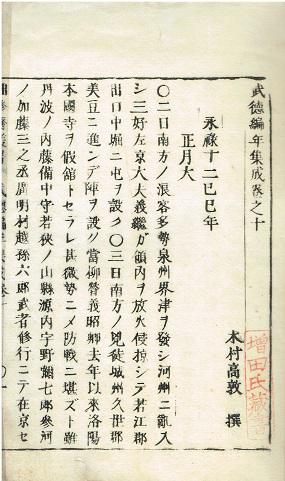 武德編年集成卷之十
木村高敦 撰
永祿十二己巳年
正月大
〇二日南方ノ浪客多勢泉州界津ヲ發シ河州ニ亂入
シ三好左京大夫義繼ガ領內ヲ放火侵掠シテ若江郡
出口中堀ニ屯ヲ設ク〇三日南方ノ兇徒城州久世郡
美豆ニ進ンデ陣ヲ設ク當柳營義昭卿去年以來洛陽
本國寺ヲ假館トセラレ甚微勢ニメ防戰ニ堪ズト雖
丹波ノ內藤備中守若狹ノ山縣源內宇野彌七郎參河
ノ加藤三之丞周明村越孫六郎武者修行ニテ在京セ
增田氏藏書